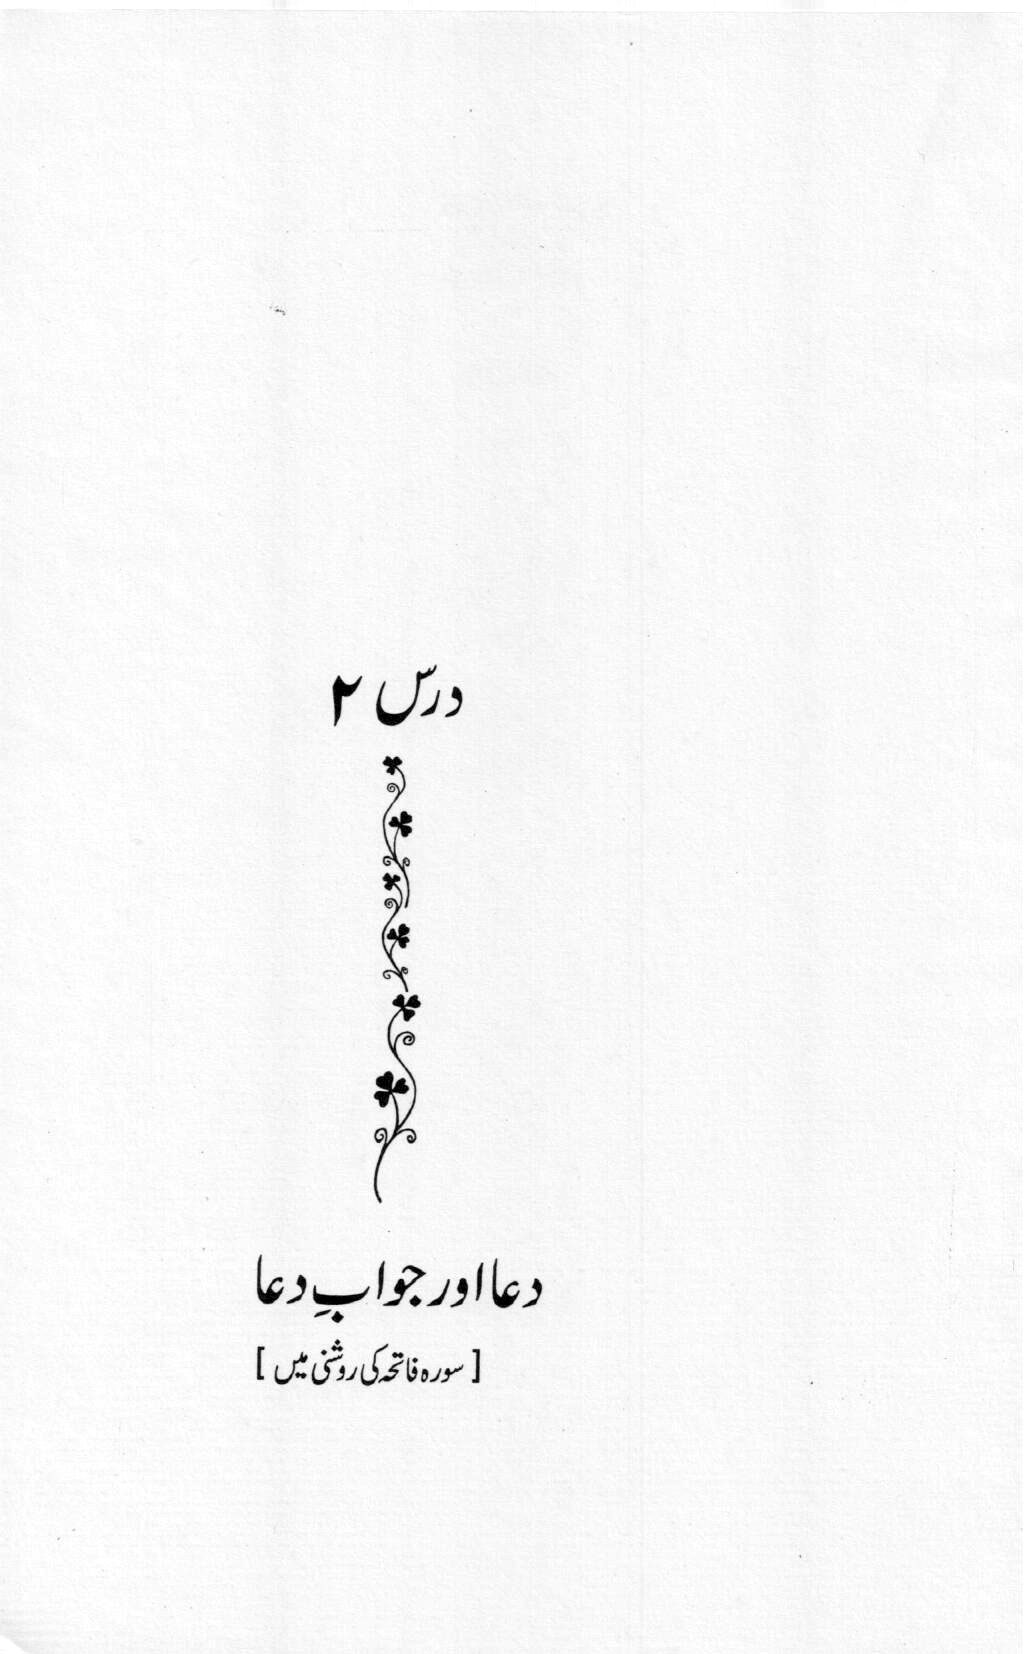 درس ۲
دعا اور جوابِ دعا
[سورہ فاتحہ کی روشنی میں]